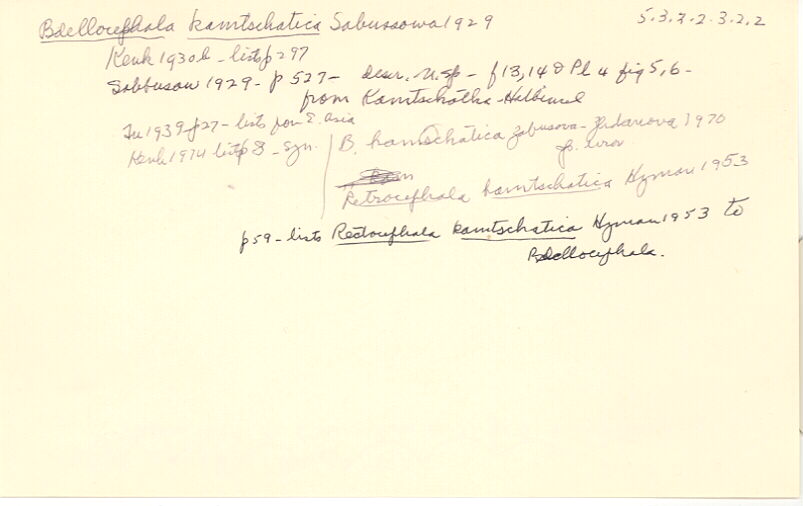 Bdellocephala kamtschatica Sabussowa 1929
5.3.7.2.3.2.2
Kenk 1930b - lists p 297
Sabbusow 1929 - p 527 - descr. n. sp - f 13, 14 & Pl 4 fig 5, 6 -
from Kamtschatka -
1939 p 27 - lists from E. Asia
Kenk 1974 list p 8 - syn.
B. kamtschatica Zabusova - Zhdanova, 1970
Retrocephala kamtschatica Hyman 1953
p 59 - lists Rectocephala kamtschatica Hyman 1953 to
Bdellocephala.